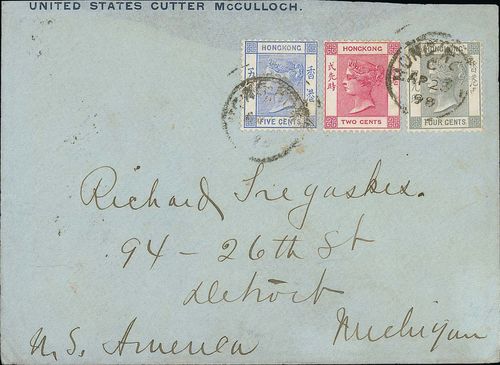 UNITED STATES CUTTER McCULLOCH.
HONGKONG
HONGKONG
HONGKONG
FIVE CENTS
TWO CENTS
FOUR CENTS
HONG KONG
C
AP 23
98
Richard Tregaskis.
94 - 26th St
Detroit
Michigan
U.S. America